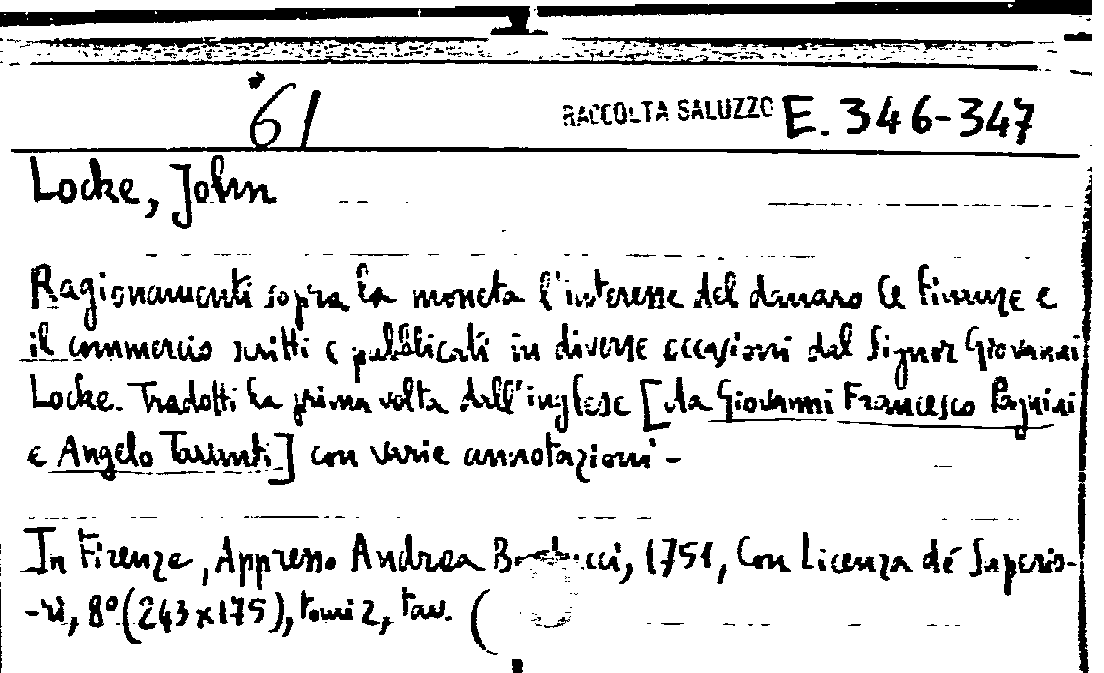 61
RACCOLTA SALUZZO E. 346-347
Locke, John
Ragionamenti sopra la moneta l'interesse del danaro le finanze e
il commercio scritti e pubblicati in diverse occasioni dal Signor Giovanni
Locke. Tradotti la prima volta dall'inglese [da Giovanni Francesco Pagnini
e Angelo Tavanti] con varie annotazioni -
In Firenze, Appresso Andrea 1751, Con Licenza dé Superio-
-ri, 8° (243x175), tomi 2, tav. (